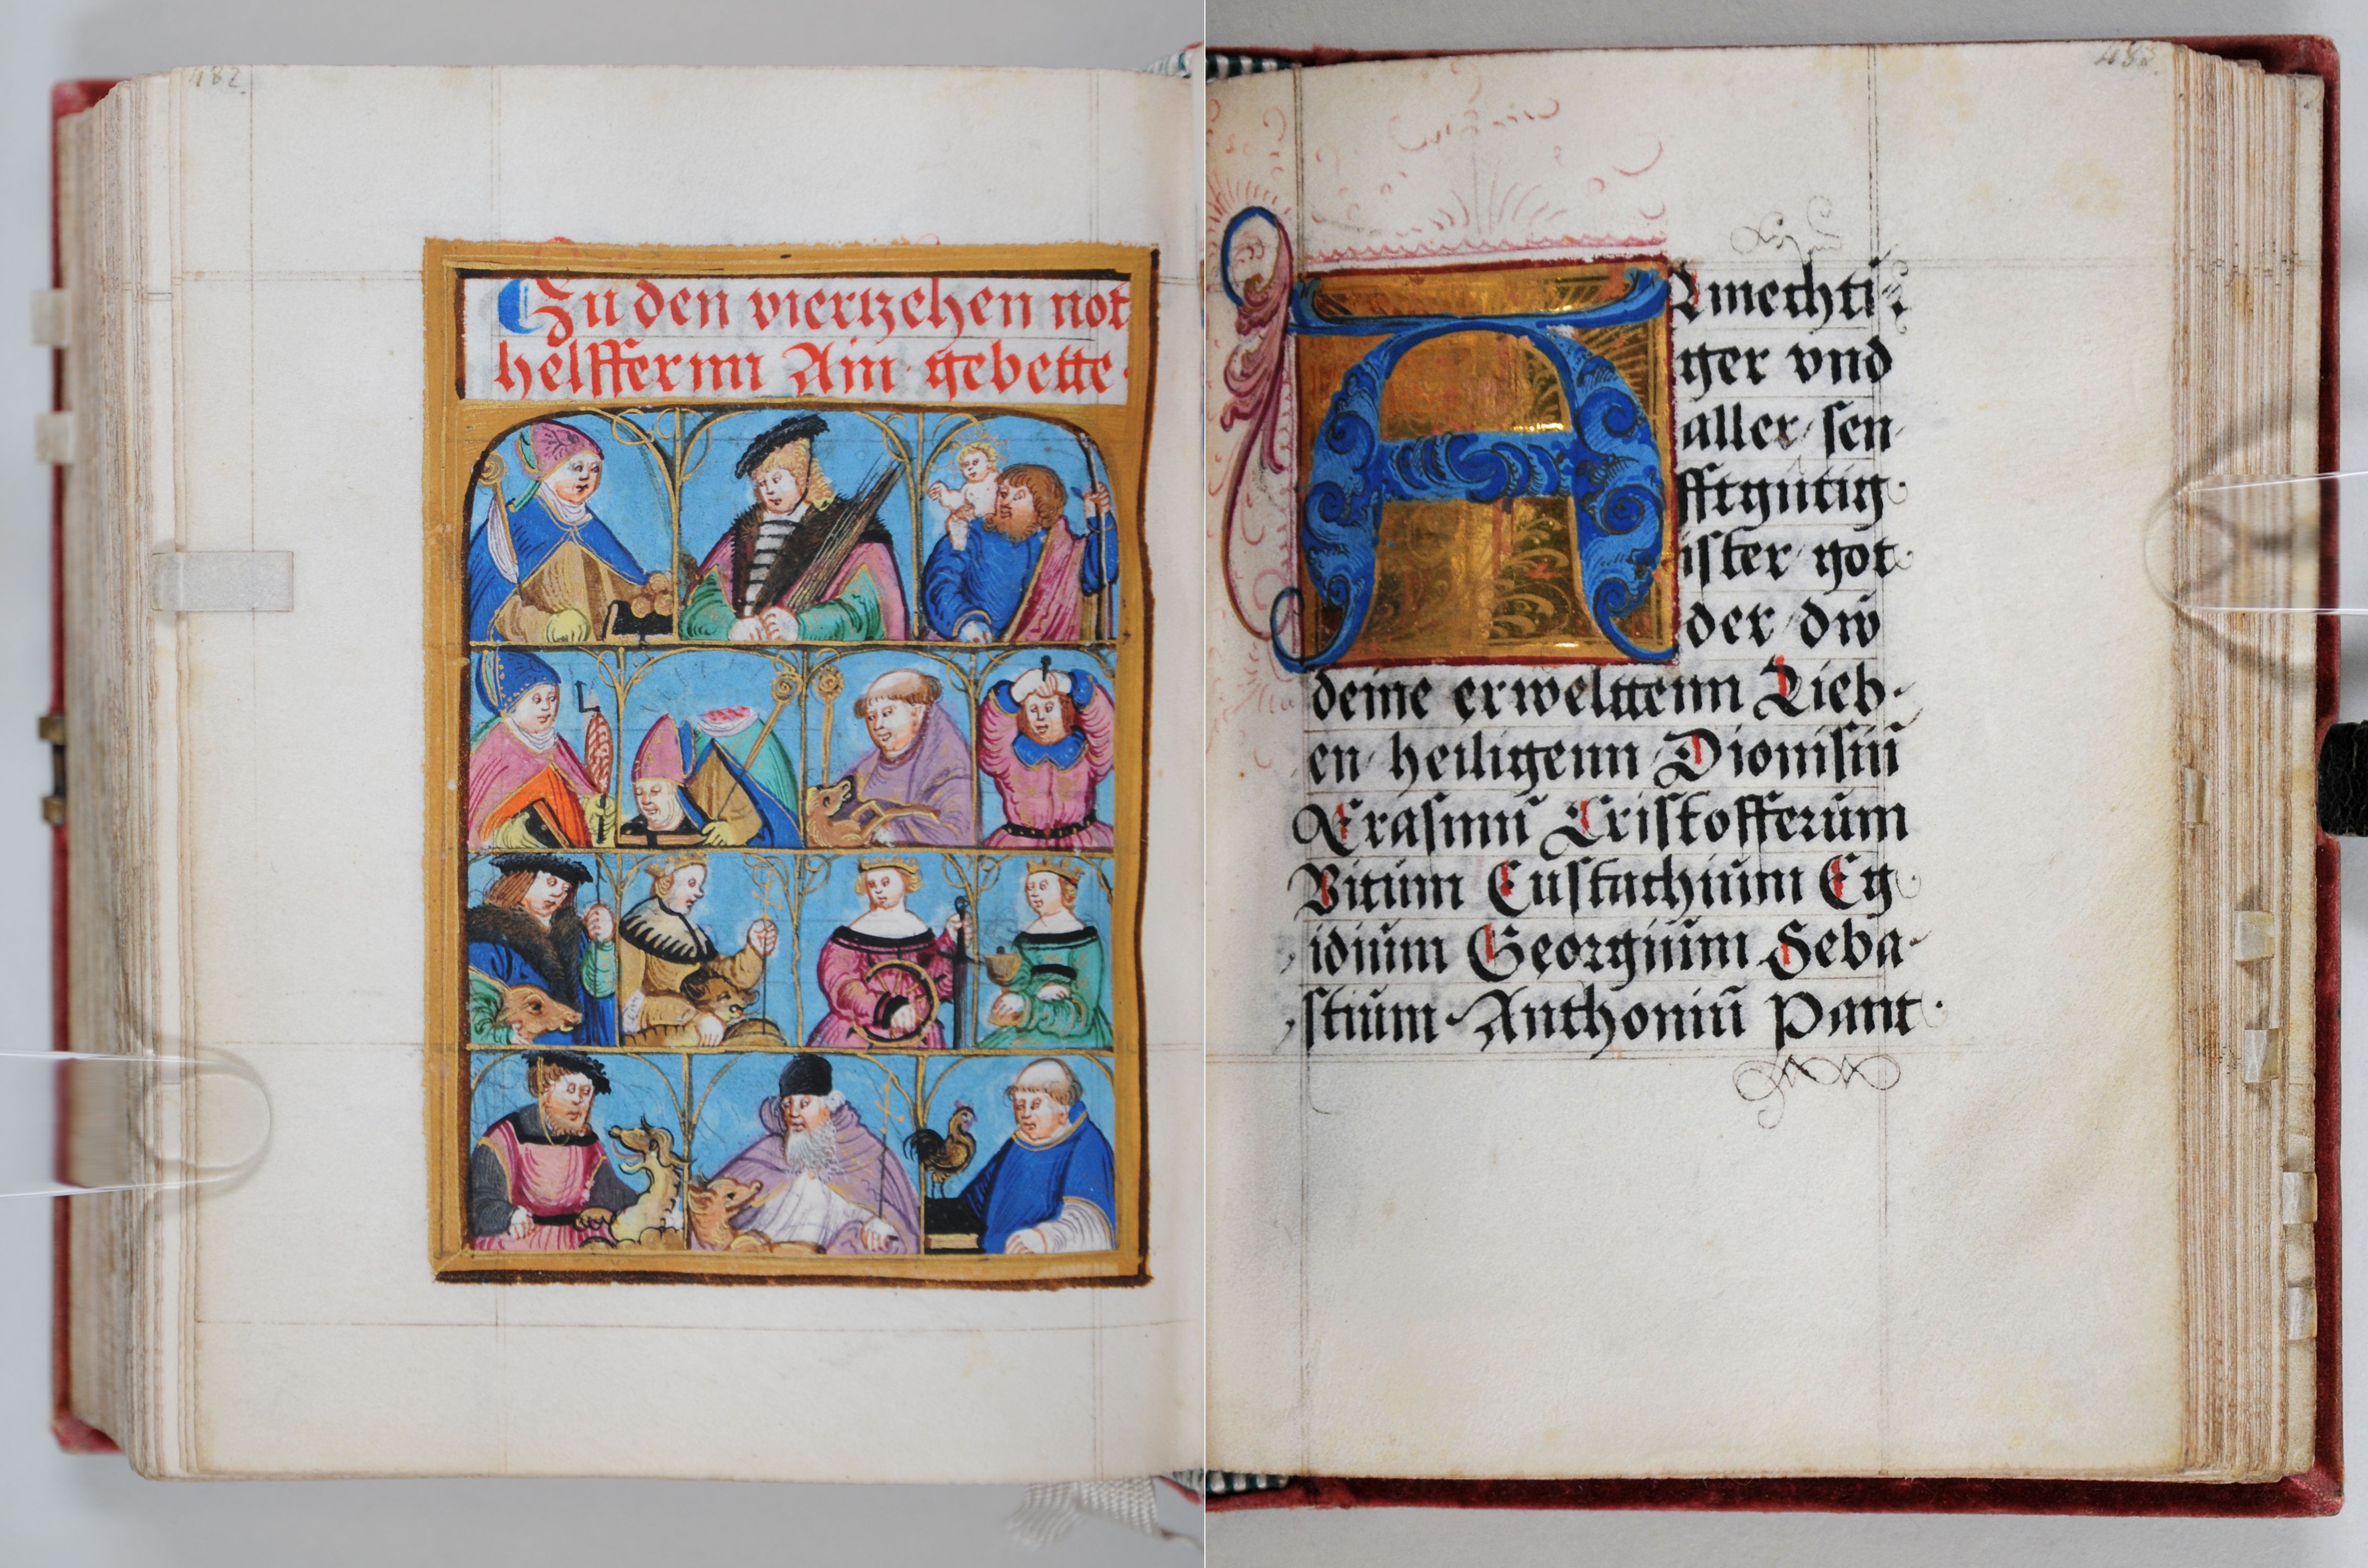 482.
Zu den viertzehen not
helffernn Ain gebette·
483.
Almechti
ger vnd
aller sen
fftgütig
ister got
der dw
deine erwelttenn Lieb
en heiligenn Dionisiū
Erasmū Cristofferum
Vitum Eustachium Eg
idium Georgium Seba
stium Anthoniū Pant